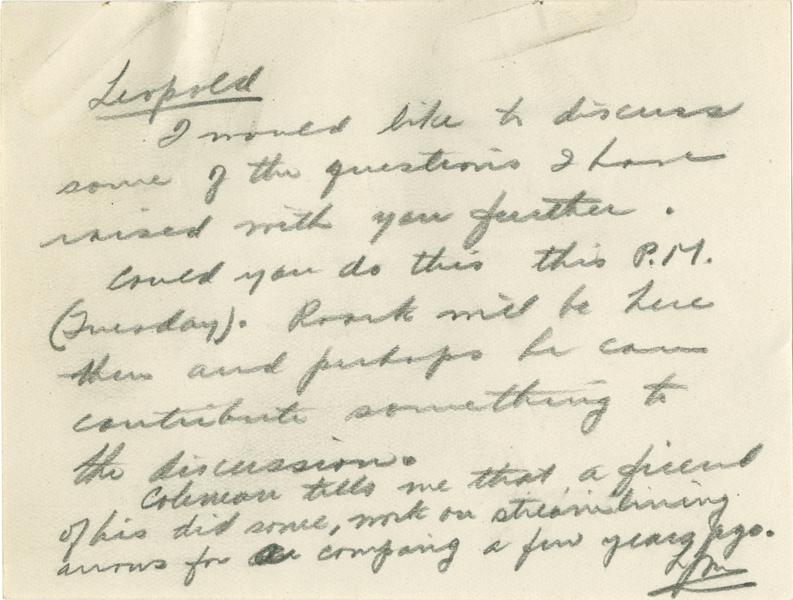 Leopold
I would like to discuss
some of the questions I have
raised with you further.
Could you do this this P.M.
(Tuesday). Roark will be here
then and perhaps he can
contribute something to
the discussion.
Coleman tells me that a friend
of his did some work on streamlining
arrows for a company a few years ago.